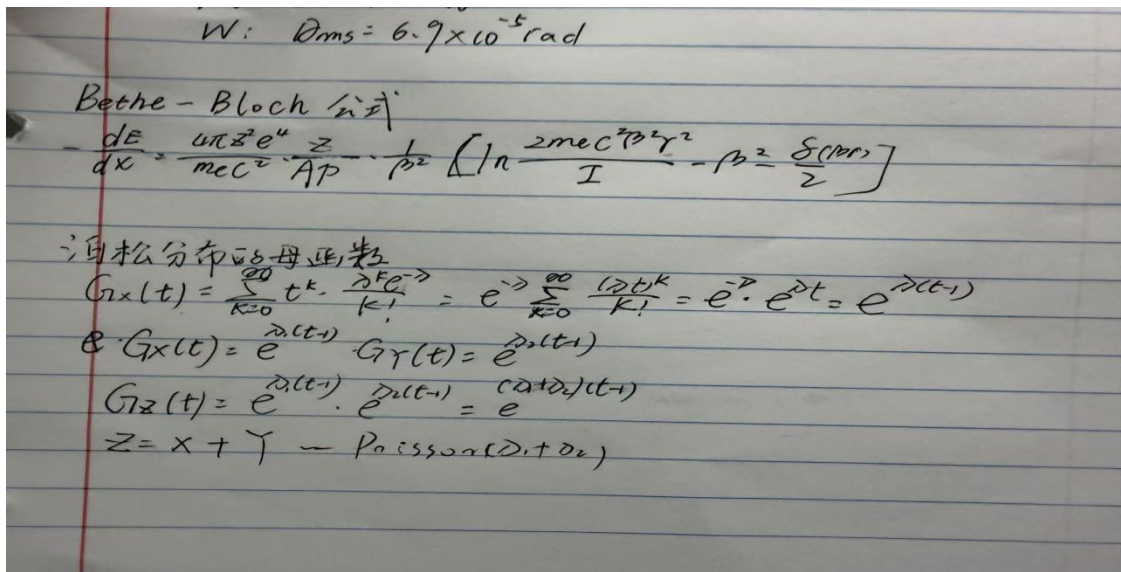 W: θms = 6.9×10^-5 rad
Bethe - Bloch 公式
-dE/dx = 4πz²e⁴/mec² · Z/Aρ · 1/β² [ln 2mec²β²γ²/I - β² = δ(βγ)/2]
泊松分布的母函数
Gx(t) = ∑_{k=0}^{∞} t^k · λ^k e^{-λ}/k! = e^{-λ} ∑_{k=0}^{∞} (λt)^k/k! = e^{-λ} · e^{λt} = e^{λ(t-1)}
Gx(t) = e^{λ1(t-1)} GY(t) = e^{λ2(t-1)}
Gz(t) = e^{λ1(t-1)} · e^{λ2(t-1)} = e^{(λ1+λ2)(t-1)}
Z = X + Y ~ Poisson(λ1+λ2)